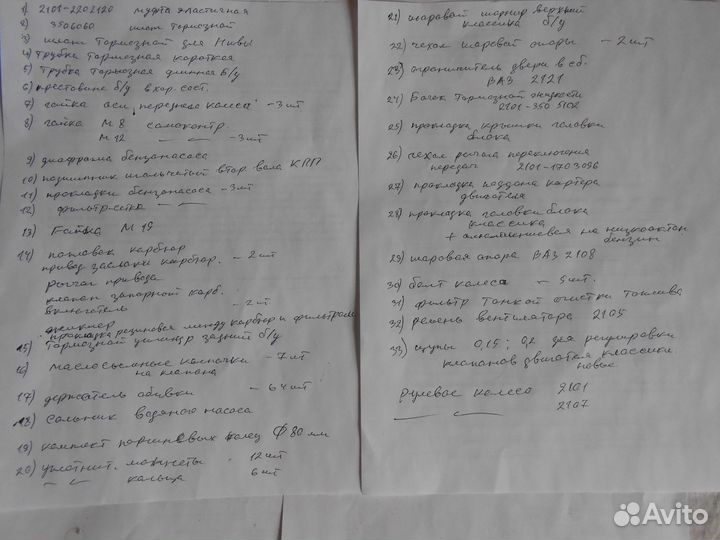 1) 2101-2202120 муфта эластичная
2) 3506060 шланг тормозной
3) шланг тормозной для Нивы
4) трубка тормозная короткая
5) трубка тормозная длинная б/у
6) крестовина б/у в хор. сост.
7) гайка оси переднего колеса - 3 шт
8) гайка М 8 самоконтр.
М 12 — " — - 3 шт
9) диафрагма бензонасоса
10) подшипник игольчатый втор. вала КПП
11) прокладки бензонасоса - 3 шт
12) фильтр-сетка — " —
13) Гайка М 19
14) поплавок карбюр
привод заслонки карбюр. - 2 шт
рычаг привода
клапан запорный карб.
включатель - 2 шт.
жиклер
прокладка резиновая между карбюр и фильтром
15) Тормозной цилиндр задний б/у
16) маслосъемные колпачки - 7 шт
на клапана
17) держатель обивки - 64 шт
18) сальник водяного насоса
19) комплект поршневых колец Ф 80 мм
20) уплотнит. манжеты 12 шт
— " — кольца 6 шт
21) шаровой шарнир верхний
классика б/у
22) чехол шаровой опоры - 2 шт
23) ограничитель двери в сб.
ВАЗ 2121
24) Бачек тормозной жидкости
2101-350 5102
25) прокладка крышки головки
блока
26) чехол рычага переключения
передач 2101-1703096
27) прокладка поддона картера
двигателя
28) прокладка головки блока
классика
+ алюминиевая на низкооктан
бензин
29) шаровая опора ВАЗ 2108
30) болт колеса - 5 шт.
31) фильтр тонкой очистки топлива
32) ремень вентилятора 2105
33) щупы 0,15; 0,2 для регулировки
клапанов двигателя классики
новые
Рулевое колесо 2101
— " — 2107
Avito